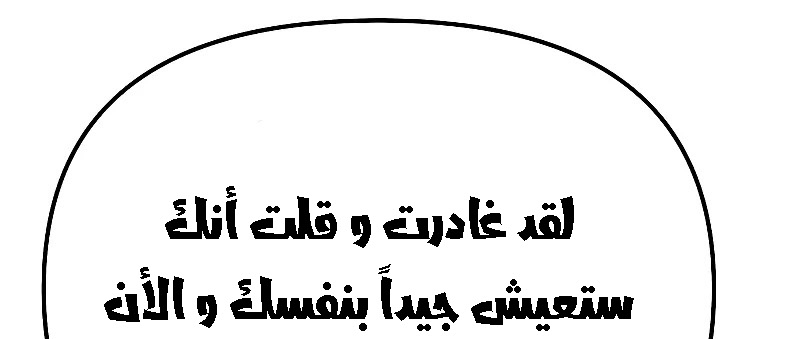 لقد غادرت و قلت أنك
ستعيش جيداً بنفسك و الأن